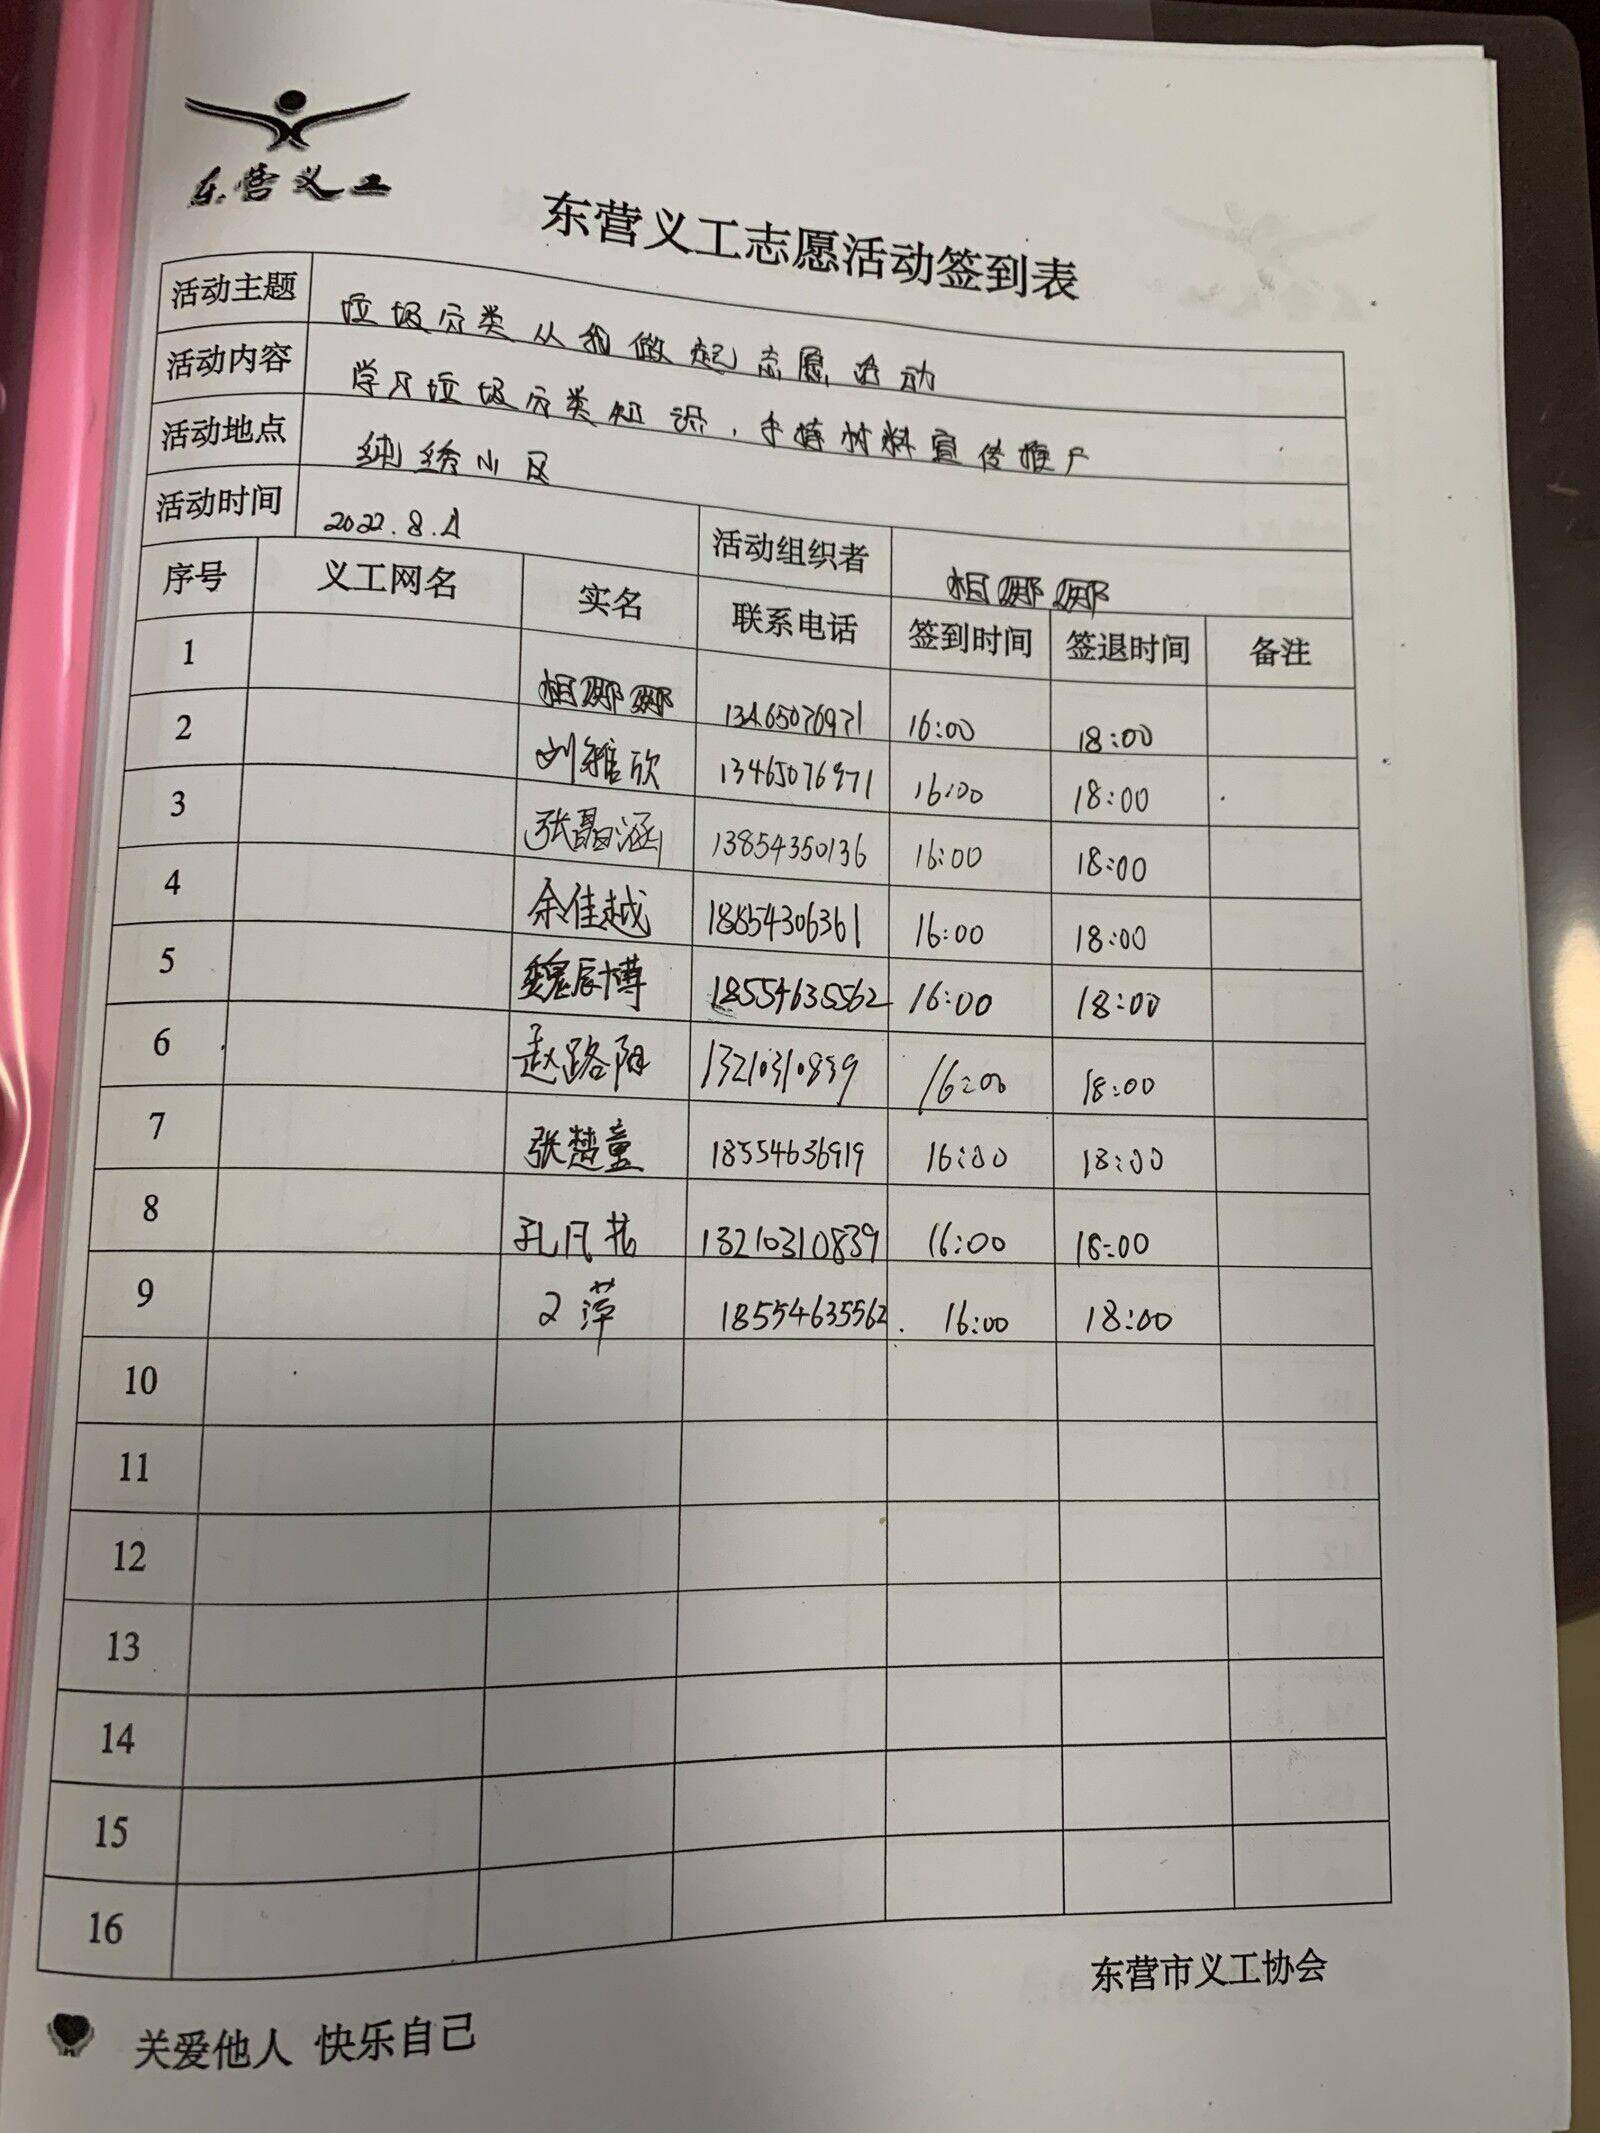 东营义工
东营义工志愿活动签到表
活动主题 垃圾分类从我做起志愿活动
活动内容 学习垃圾分类知识，手持材料宣传推广
活动地点 纯绣小区
活动时间 2022.8.1 活动组织者 相娜娜
序号 义工网名 实名 联系电话 签到时间 签退时间 备注
1 相娜娜 13465076971 16:00 18:00
2 刘雅欣 13465076971 16:00 18:00
3 张晶涵 13854350136 16:00 18:00
4 余佳越 18854306361 16:00 18:00
5 魏辰博 18554635562 16:00 18:00
6 赵路阳 13210310839 16:00 18:00
7 张楚童 18554636919 16:00 18:00
8 孔凡 13210310839 16:00 18:00
9 萍 18554635562 16:00 18:00
10
11
12
13
14
15
16
东营市义工协会
关爱他人 快乐自己